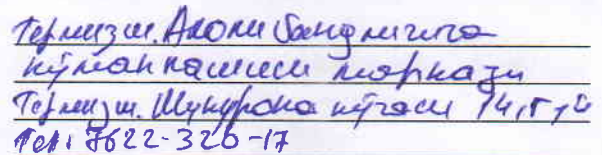 Термиз ш. Аҳоли бандлигига
кўмаклашиш маркази
Термиз ш. Шукрона кўчаси 14,
Тел: 7622-326-17